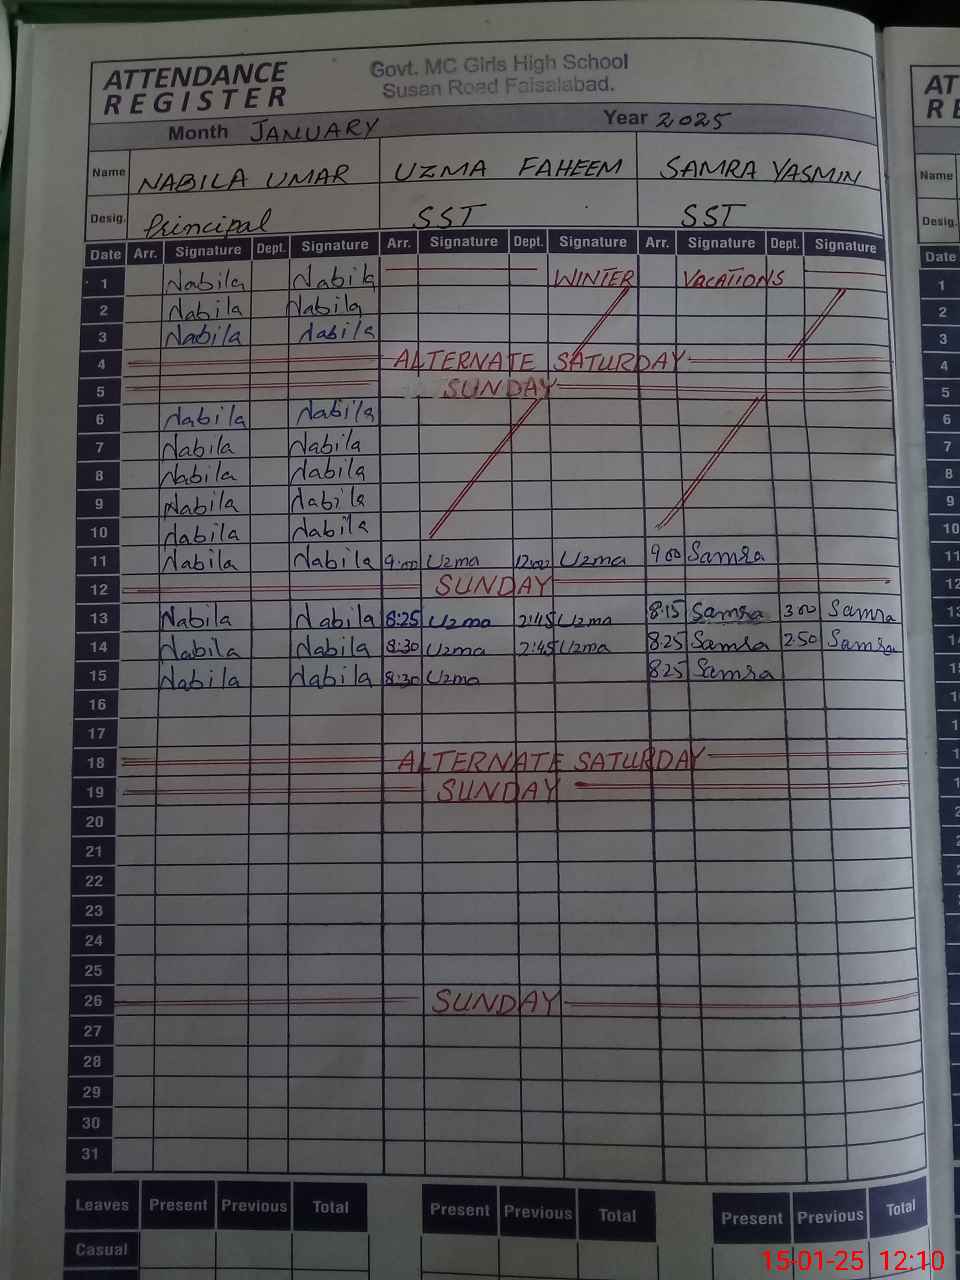 ATTENDANCE REGISTER
Govt. MC Girls High School
Susan Road Faisalabad.
Month JANUARY Year 2025
Name NABILA UMAR UZMA FAHEEM SAMRA YASMIN
Desig. Principal SST SST
Date Arr. Signature Dept. Signature Arr. Signature Dept. Signature Arr. Signature Dept. Signature
1 Nabila Nabila WINTER VACATIONS
2 Nabila Nabila
3 Nabila Nabila
4 ALTERNATE SATURDAY
5 SUNDAY
6 Nabila Nabila
7 Nabila Nabila
8 Nabila Nabila
9 Nabila Nabila
10 Nabila Nabila
11 Nabila Nabila 9:00 Uzma 12:00 Uzma 9 00 Samra
12 SUNDAY
13 Nabila Nabila 8:25 Uzma 2:45 Uzma 8:15 Samra 3 00 Samra
14 Nabila Nabila 8:30 Uzma 2:45 Uzma 8:25 Samra 2 50 Samra
15 Nabila Nabila 8:30 Uzma 8 25 Samra
16
17
18 ALTERNATE SATURDAY
19 SUNDAY
20
21
22
23
24
25
26 SUNDAY
27
28
29
30
31
Leaves Present Previous Total Present Previous Total Present Previous Total
Casual
AT
RE
Name
Desig.
Date
1
2
3
4
5
6
7
8
9
10
11
12
13
14
15-01-25 12:10